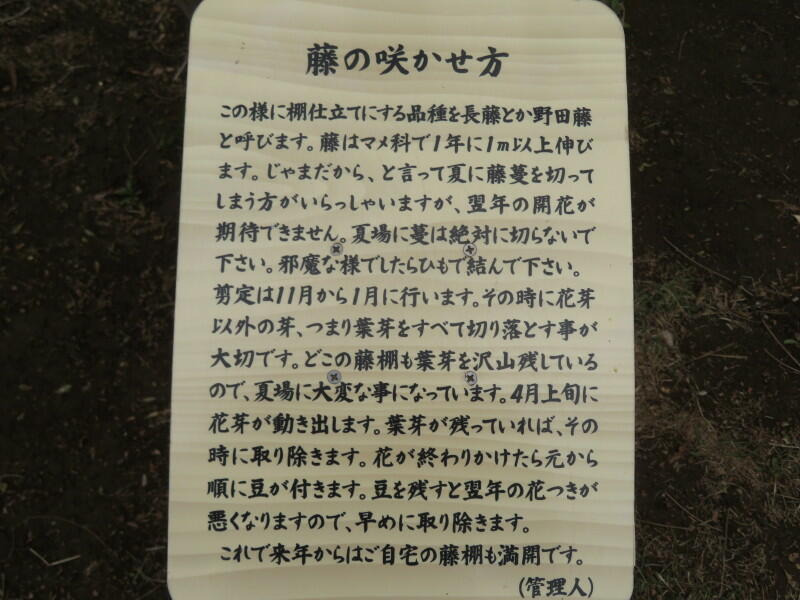 藤の咲かせ方
この様に棚仕立てにする品種を長藤とか野田藤
と呼びます。藤はマメ科で1年に1m以上伸び
ます。じゃまだから、と言って夏に藤蔓を切って
しまう方がいらっしゃいますが、翌年の開花が
期待できません。夏場に蔓は絶対に切らないで
下さい。邪魔な様でしたらひもで結んで下さい。
剪定は11月から1月に行います。その時に花芽
以外の芽、つまり葉芽をすべて切り落とす事が
大切です。どこの藤棚も葉芽を沢山残している
ので、夏場に大変な事になっています。4月上旬に
花芽が動き出します。葉芽が残っていれば、その
時に取り除きます。花が終わりかけたら元から
順に豆が付きます。豆を残すと翌年の花つきが
悪くなりますので、早めに取り除きます。
これで来年からはご自宅の藤棚も満開です。
(管理人)